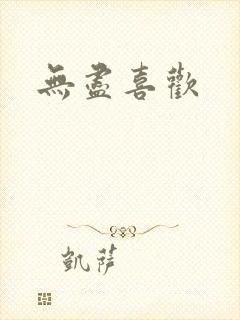 無盡喜歡
凱薩